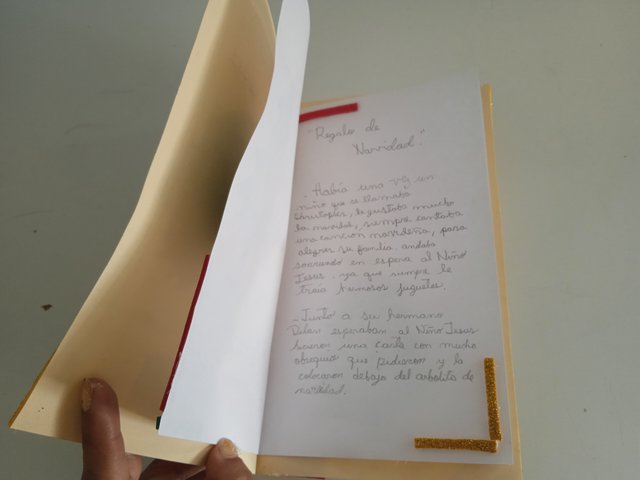 "Regalo de
Navidad."
- Había una vez un
niño que se llamaba
Christopher, le gustaba mucho
la navidad, siempre cantaba
una canción navideña, para
alegrar su familia. andaba
sonriendo en espera al Niño
Jesus. ya que siempre le
traía hermosos juguetes.
- Junto a su hermano
Dilan esperaban al Niño Jesus
hicieron una carta con mucho
obsequio que pidieron y la
colocaron debajo del arbolito de
navidad.